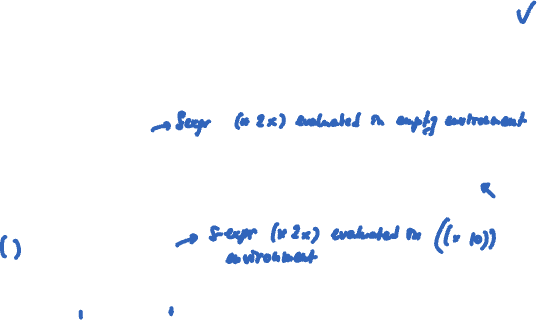 → Sexpr (* 2 x) evaluated in empty environment
→ S-expr (* 2 x) evaluated in ((x 10))
( )
environment